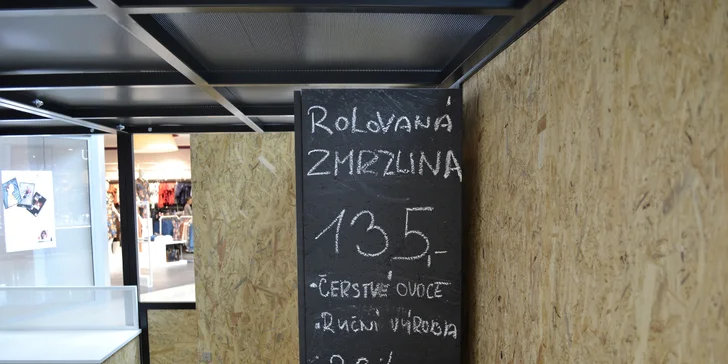 ROLOVANÁ
ZMRZLINA
135,-
·ČERSTVÉ OVOCE
·RUČNÍ VÝROBA